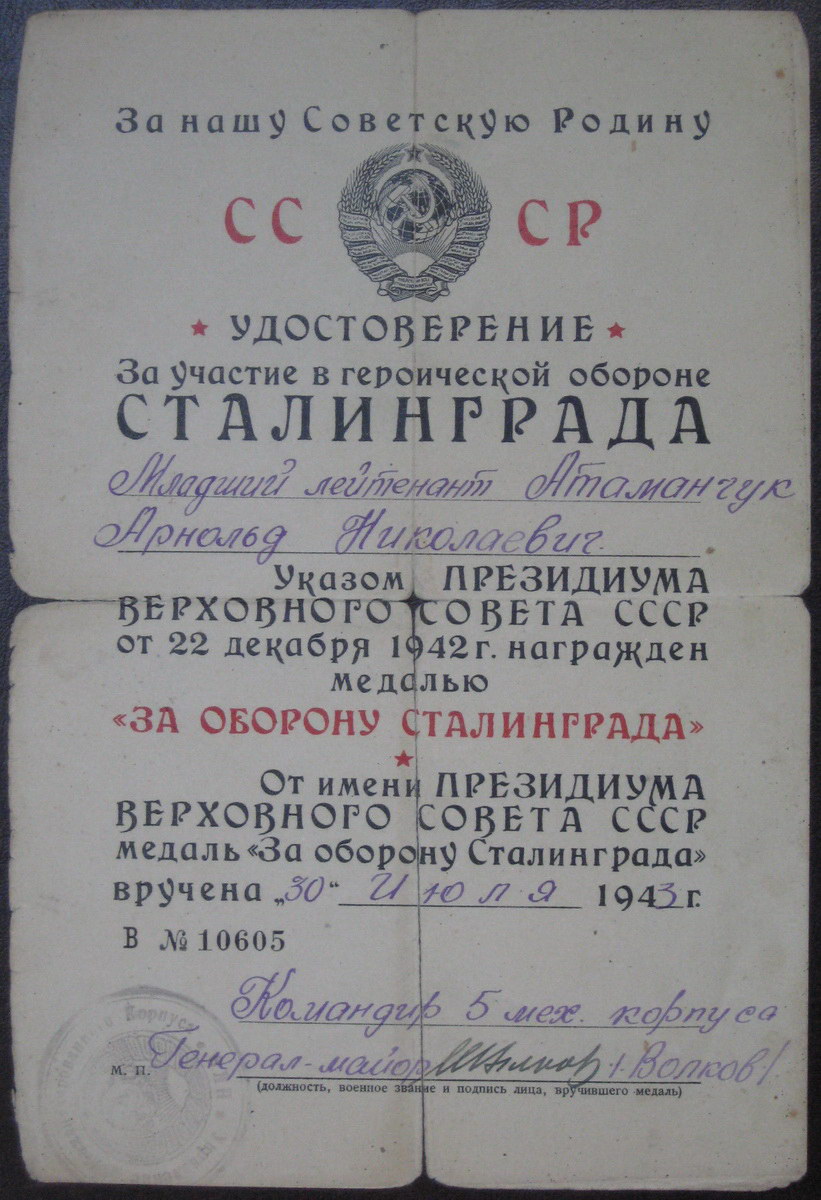 За нашу Советскую Родину
СС СР
УДОСТОВЕРЕНИЕ
За участие в героической обороне
СТАЛИНГРАДА
Младший лейтенант Атаманчук
Арнольд Николаевич.
Указом ПРЕЗИДИУМА
ВЕРХОВНОГО СОВЕТА СССР
от 22 декабря 1942 г. награжден
медалью
«ЗА ОБОРОНУ СТАЛИНГРАДА»
От имени ПРЕЗИДИУМА
ВЕРХОВНОГО СОВЕТА СССР
медаль «За оборону Сталинграда»
вручена „30“ Июля 1943 г.
В № 10605
Командир 5 мех. корпуса
м. п. Генерал-майор /-Волков-/
(должность, военное звание и подпись лица, вручившего медаль)
Корпуса